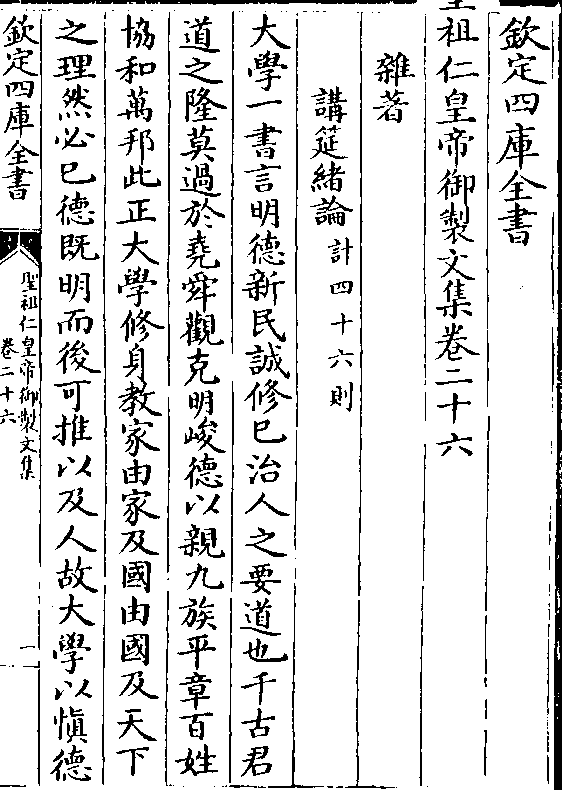 欽定四庫全書
聖祖仁皇帝御製文集卷二十六
雜著
講筵緒論計四十六則
大學一書言明德新民誠修已治人之要道也千古君
道之隆莫過於堯舜觀克明峻德以親九族平章百姓
協和萬邦此正大學修身教家由家及國由國及天下
之理然必已德既明而後可推以及人故大學以慎德
欽定四庫全書
聖祖仁皇帝御製文集
卷二十六
一